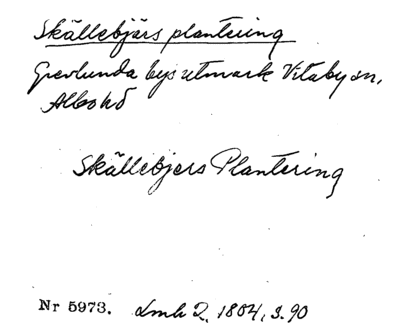 Skällebjärs plantering
Grevlunda bys utmark Vitaby sn,
Albo hd
Skällebjers Plantering
Nr 5973. Lmh 2, 1804, s. 90